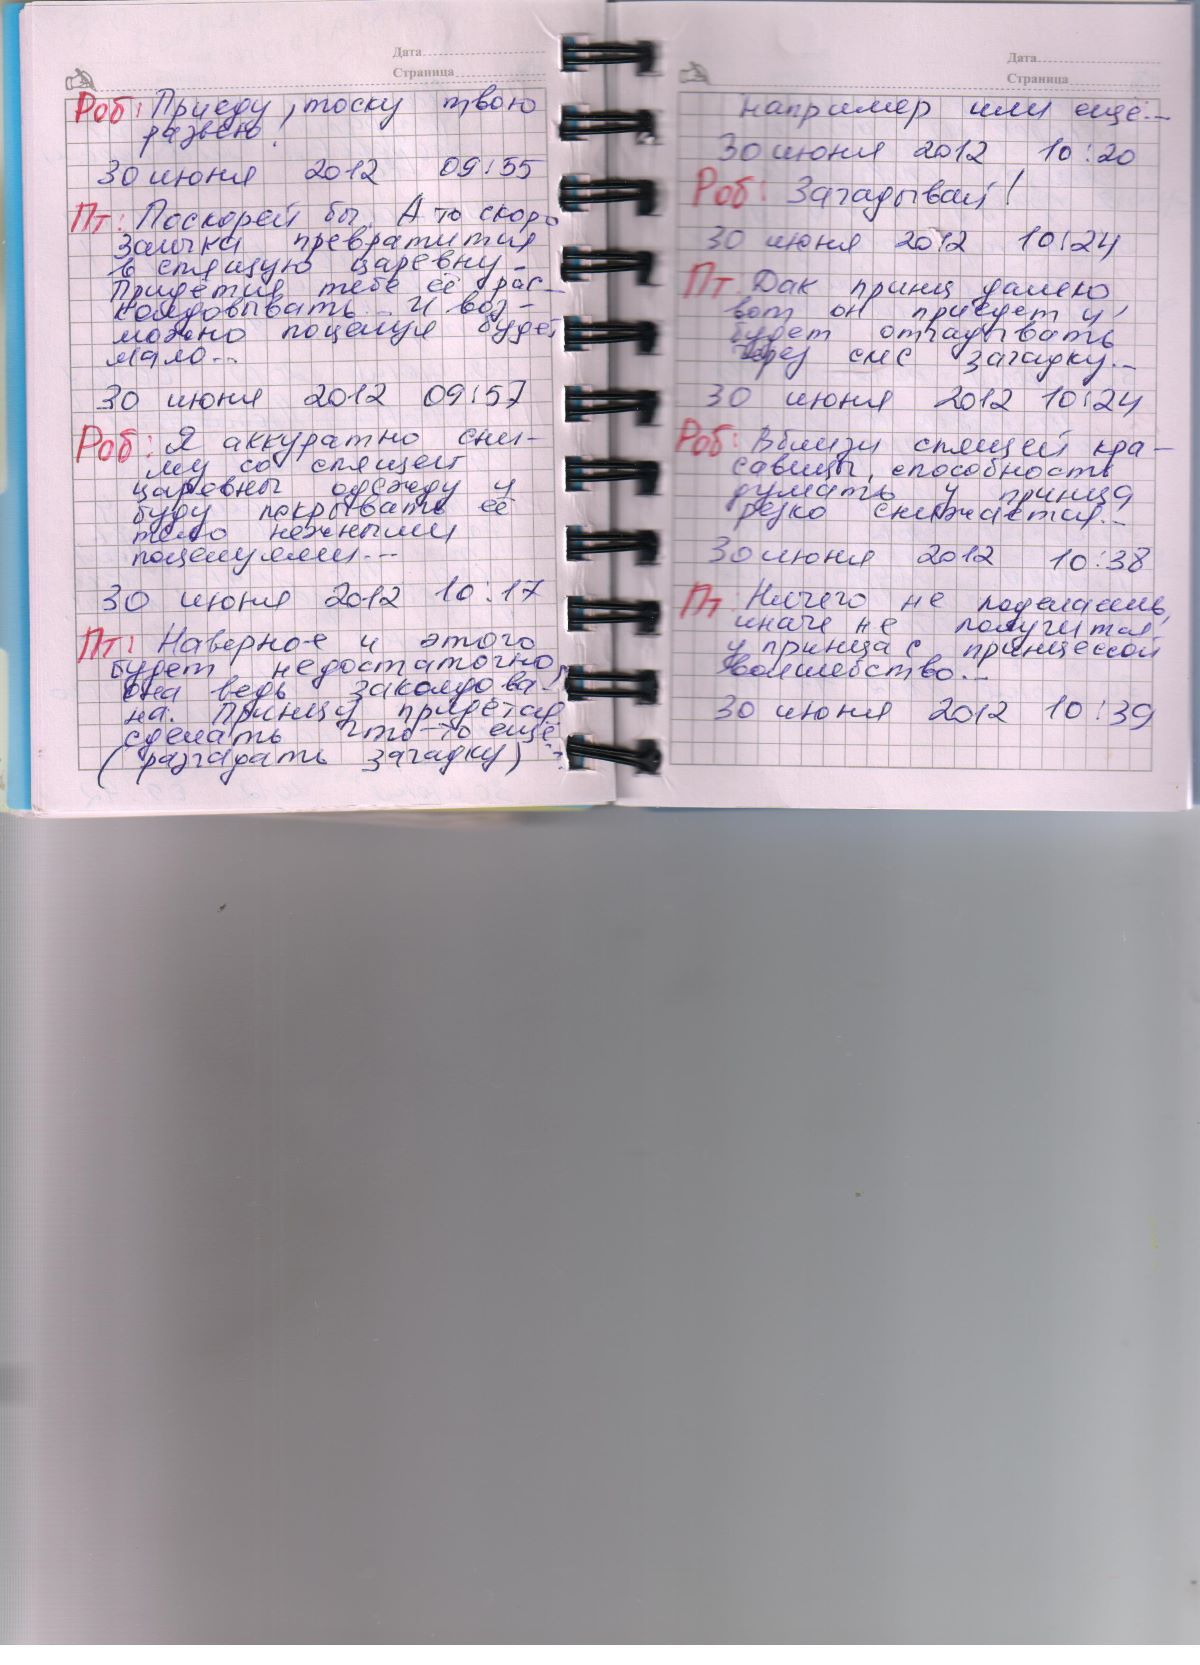 Дата
Страница
Роб: Приеду, тоску твою
развею.
30 июня 2012 09:55
Пт: Поскорей бы. А то скоро
Заичка превратится
в спящую царевну -
Придётся тебе её рас-
колдовывать... И воз-
можно поцелуя будет
мало...
30 июня 2012 09:57
Роб: Я аккуратно сни-
му со спящей
царевны одежду и
буду покрывать её
тело нежными
поцелуями...
30 июня 2012 10:17
Пт: Наверное и этого
будет недостаточно,
она ведь заколдова-
на. Принцу придётся
сделать что-то ещё
(разгадать загадку)
Дата
Страница
например или ещё...
30 июня 2012 10:20
Роб: Загадывай!
30 июня 2012 10:24
Пт: Дак принц далеко,
вот он приедет и
будет отгадывать
через смс загадку...
30 июня 2012 10:24
Роб: Вблизи спящей кра-
савицы, способность
думать у принца
резко снижается...
30 июня 2012 10:38
Пт: Ничего не поделаешь,
иначе не получится
у принца с принцессой
волшебство...
30 июня 2012 10:39